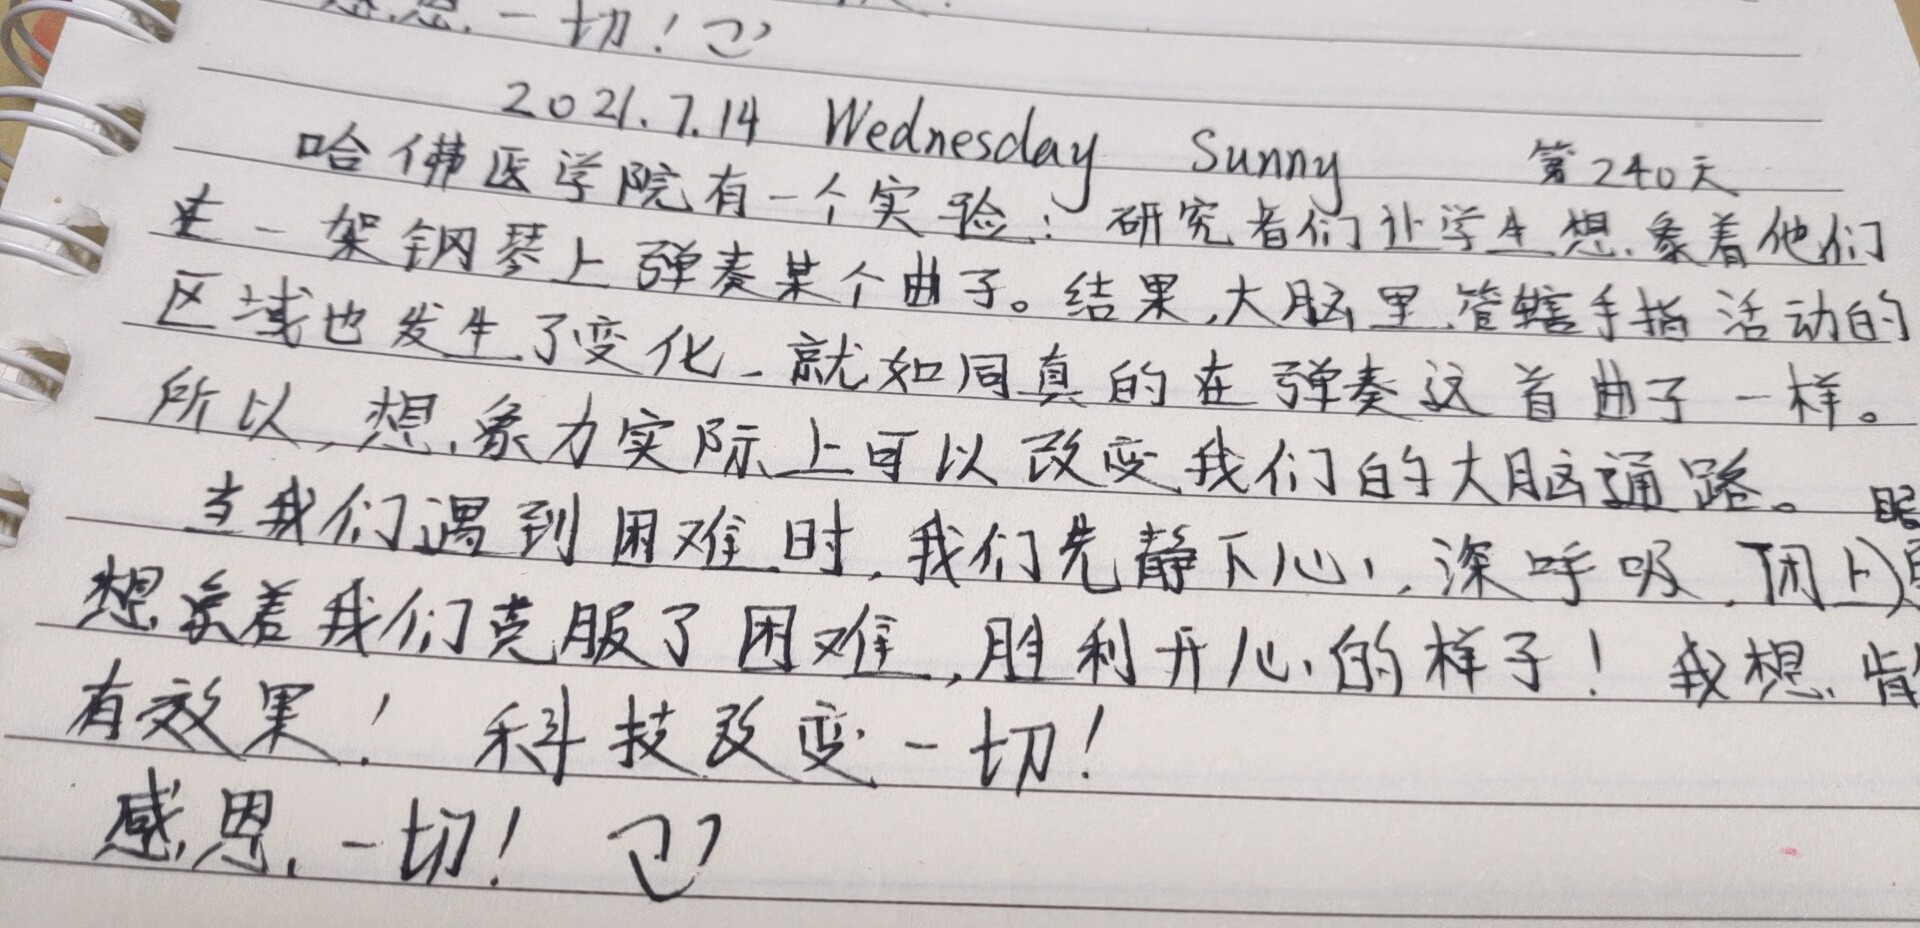 感恩一切!
2021.7.14 Wednesday Sunny 第240天
哈佛医学院有一个实验:研究者们让学生想象着他们
在一架钢琴上弹奏某个曲子。结果,大脑里管辖手指活动的
区域也发生了变化,就如同真的在弹奏这首曲子一样。
所以,想象力实际上可以改变我们的大脑通路。
当我们遇到困难时,我们先静下心,深呼吸,闭上眼
想象着我们克服了困难,胜利开心的样子!我想肯
有效果!科技改变一切!
感恩一切!